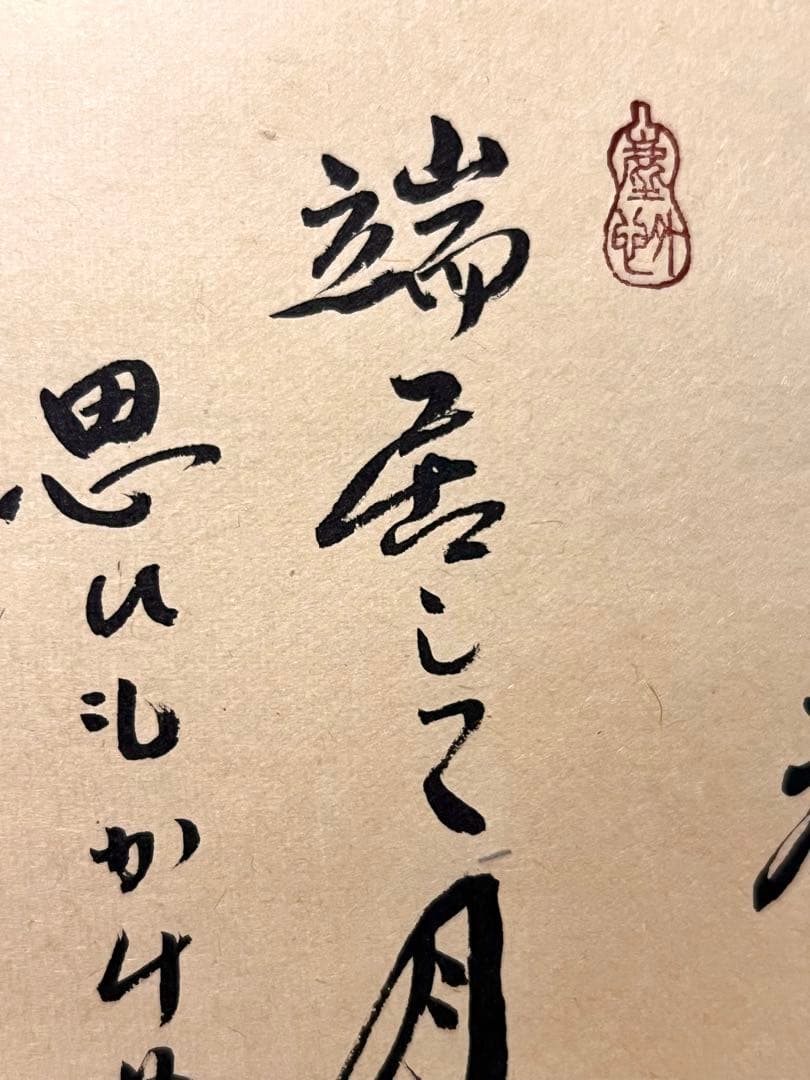 端居して月
思ひもかけ